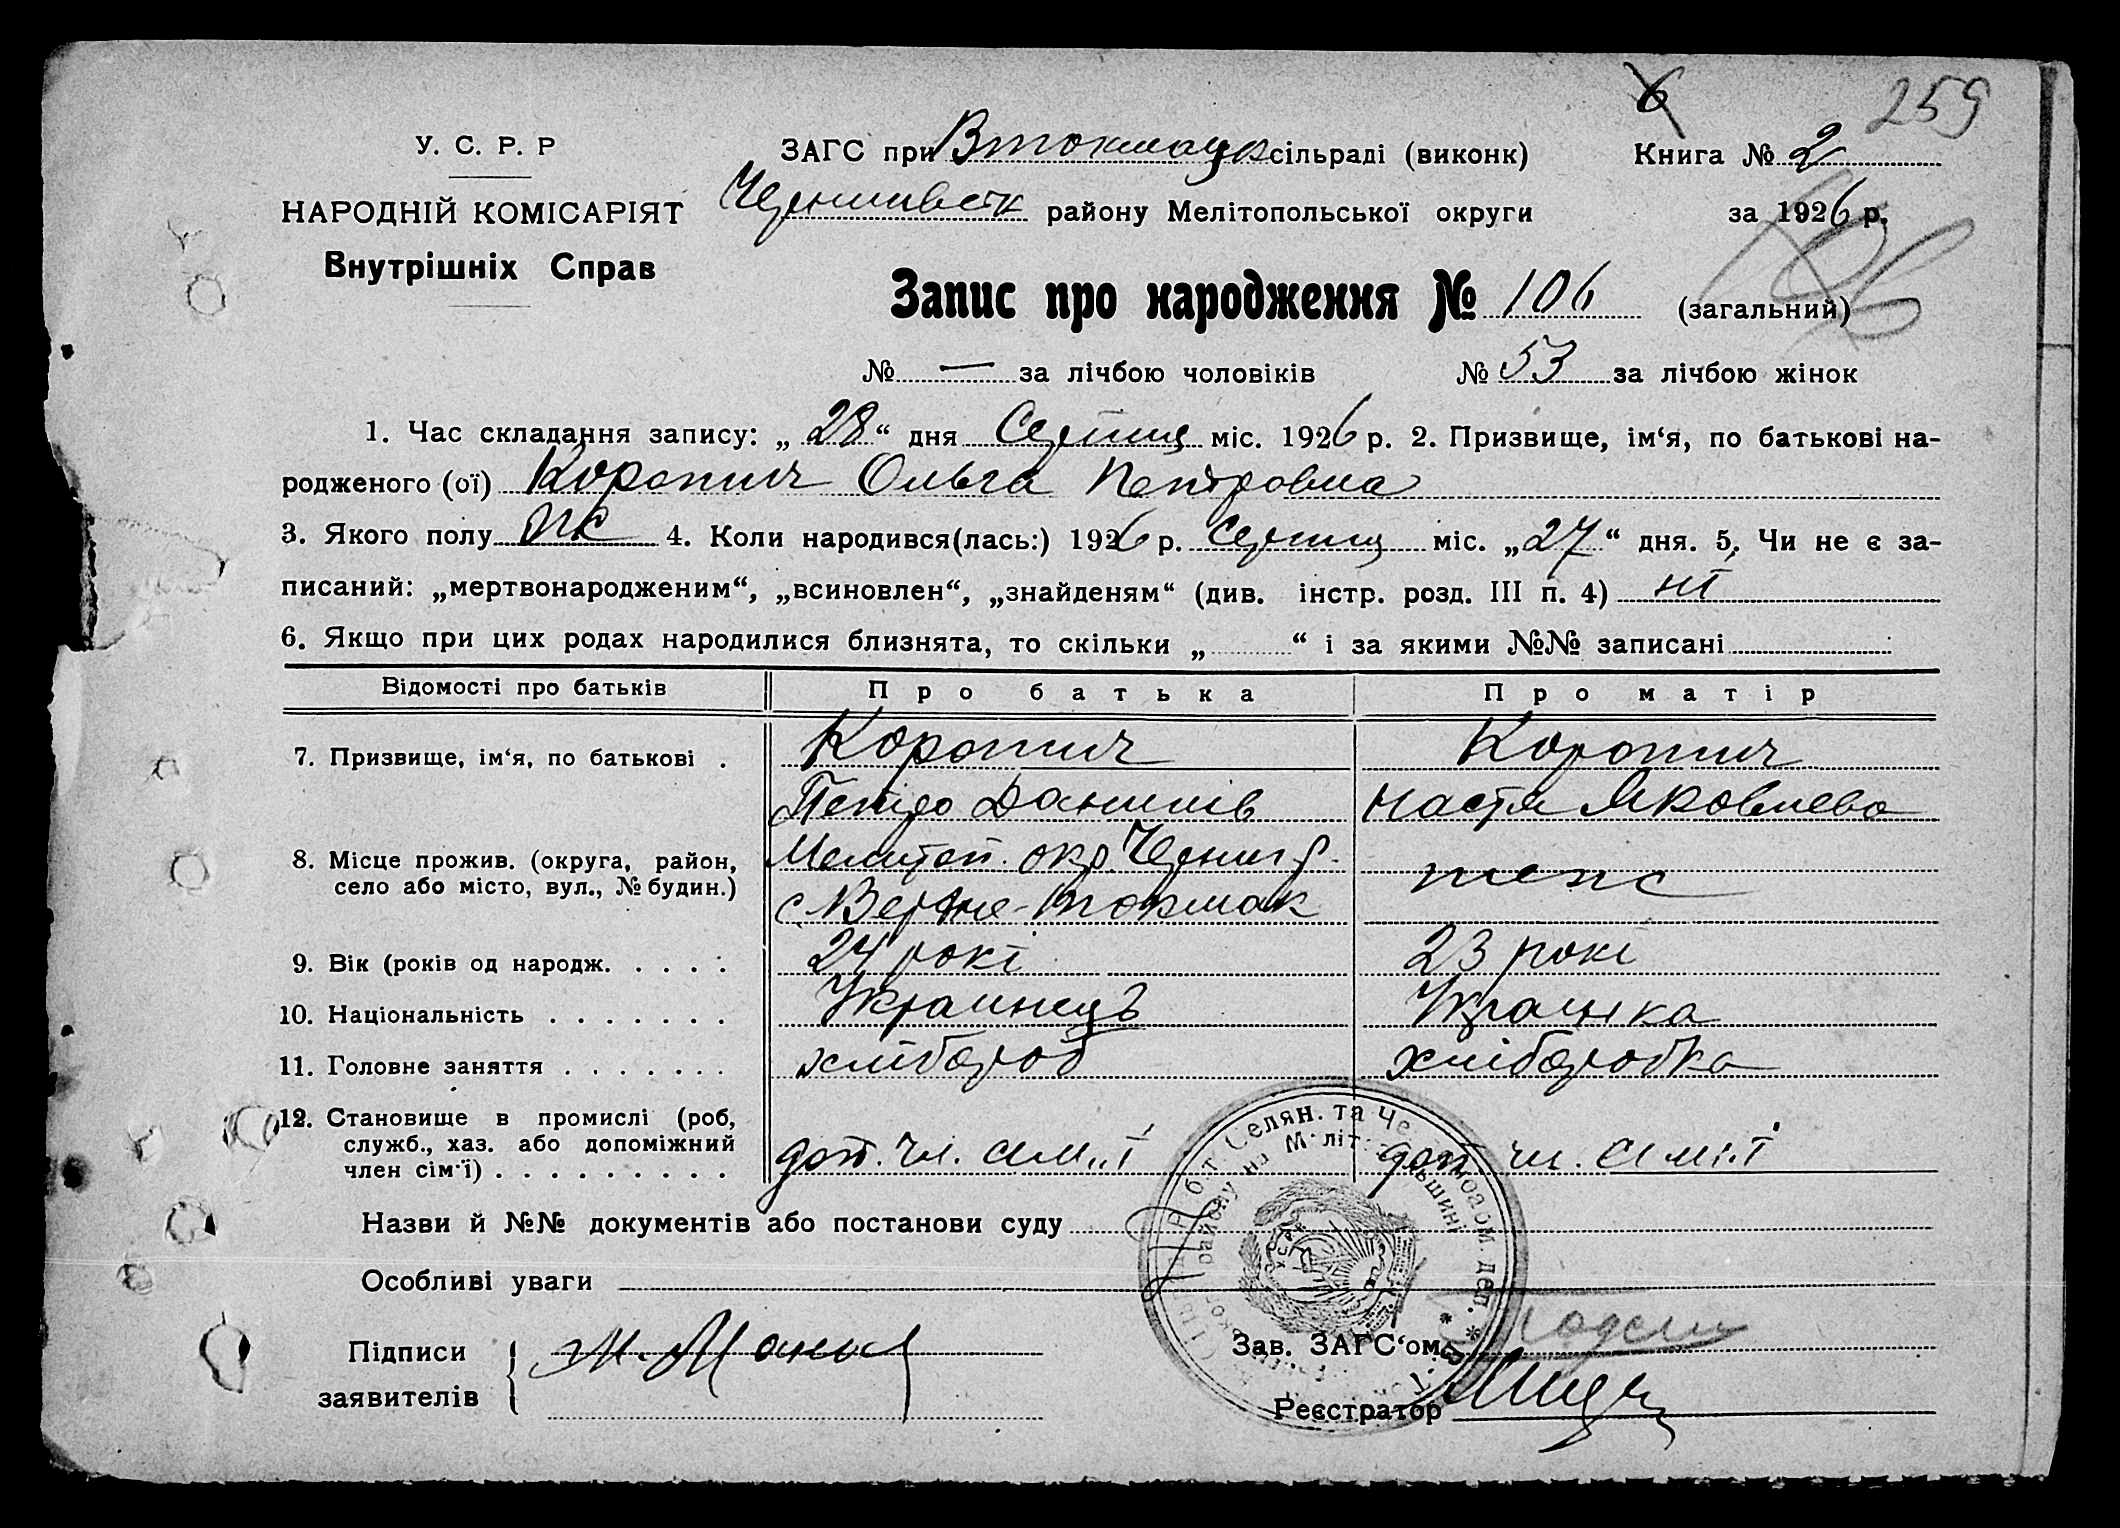 6 259
У. С. Р. Р ЗАГС при Втокмацк сільраді (виконк) Книга № 2
НАРОДНІЙ КОМІСАРІЯТ Чернигивськ району Мелітопольської округи за 1926 р.
Внутрішніх Справ
Запис про народження № 106 (загальний)
№ — за лічбою чоловіків № 53 за лічбою жінок
1. Час складання запису: „ 28 “ дня Серпня міс. 1926 р. 2. Призвище, ім‘я, по батькові на-
родженого (ої) Коропич Ольга Петровна
3. Якого полу жс 4. Коли народився(лась:) 1926 р. Серпня міс. „ 27 “ дня. 5. Чи не є за-
писаний: „мертвонародженим“, „всиновлен“, „знайденям“ (див. інстр. розд. III п. 4) ні
6. Якщо при цих родах народилися близнята, то скільки „ “ і за якими №№ записані
Відомості про батьків Про батька Про матір
7. Призвище, ім‘я, по батькові . Коропич Коропич
Петро Данилів Настя Яковлева
8. Місце прожив. (округа, район, Мелитоп. окр. Черниг р.
село або місто, вул., № будин.) с Верхне-Токмак
9. Вік (років од народж. . . . . 24 рокі 23 рокі
10. Національність . . . . . . . Украинець Украінка
11. Головне заняття . . . . . . . хлібороб хліборобка
12. Становище в промислі (роб,
служб., хаз. або допоміжний
член сім‘ї) . . . . . . . . . доп. чл. сім.ї доп. чл. сім.ї
Назви й №№ документів або постанови суду
Особливі уваги
Підписи Зав. ЗАГС‘ом
заявителів Реєстратор